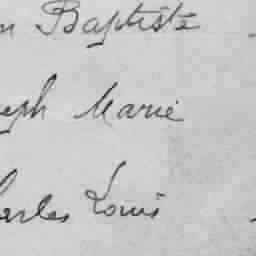 n Baptiste
eph Marie
harles Louis